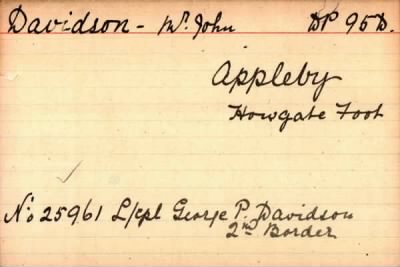 Davidson - Mr. John DP 95D.
Appleby
Howgate Foot
No: 25961 L/cpl George P. Davidson
2nd Border